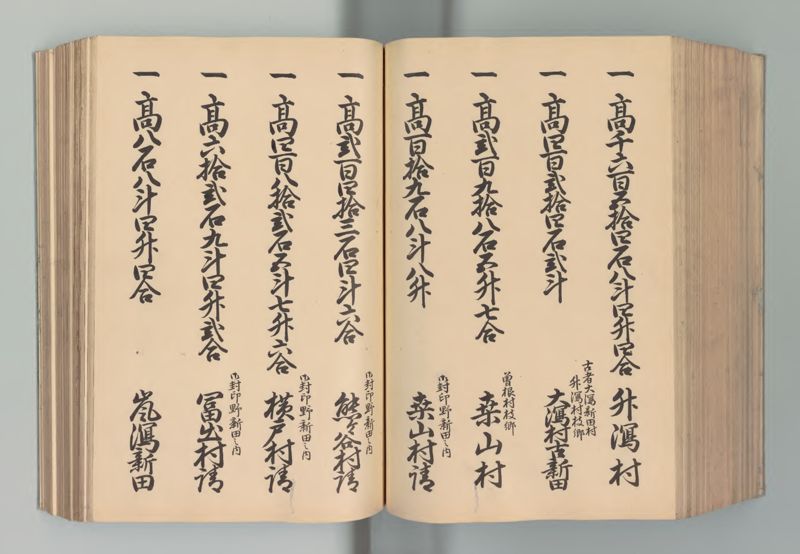 一 高千六百五拾四石八斗四升四合 升潟村
一 高四百弐拾四石弐斗 古者大潟新田村 升潟村枝郷 大潟村古新田
一 高弐百九拾八石五升七合 曽根村枝郷 桒山村
一 高百拾九石八斗八升 御封印野新田之内 桒山村請
一 高弐百四拾三石四斗六合 御封印野新田之内 熊谷村請
一 高四百八拾弐石五斗七升六合 御封印野新田之内 横戸村請
一 高六拾弐石九斗四升弐合 御封印野新田之内 冨出村請
一 高八石八斗四升四合 嵐潟新田